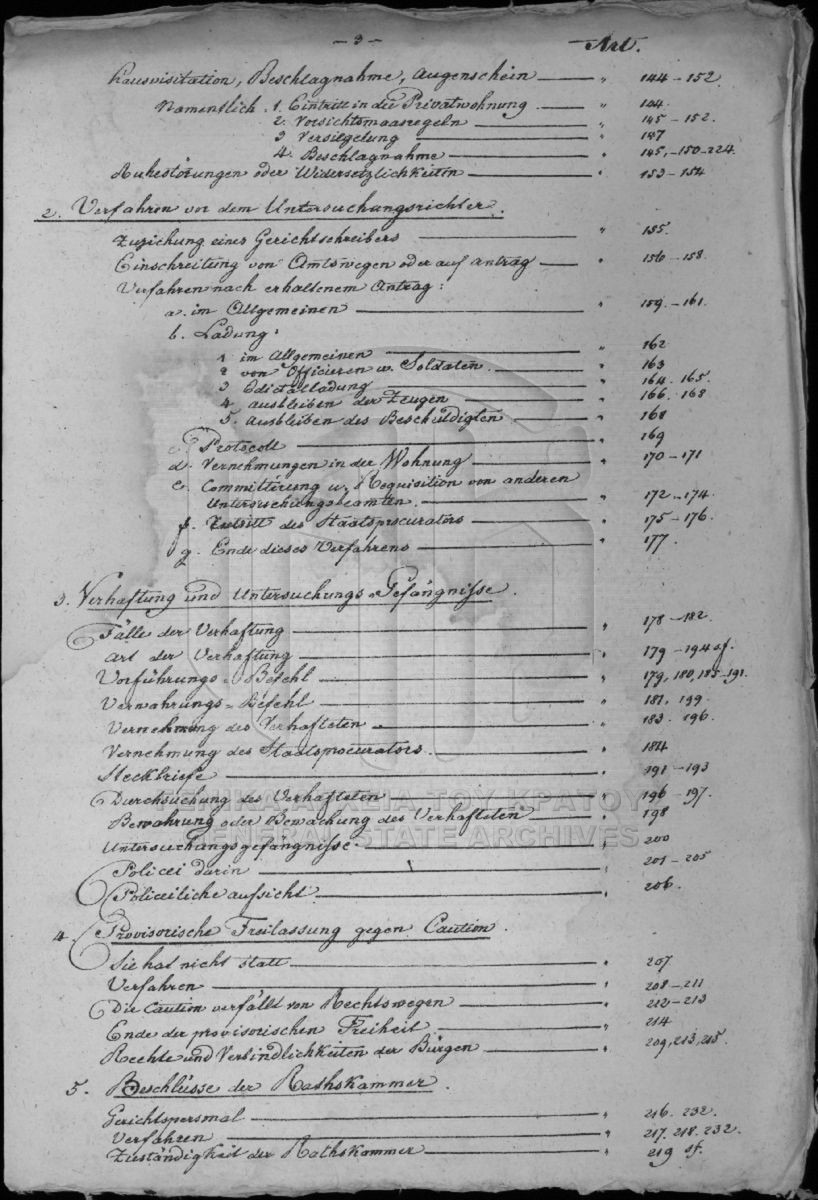 - 3 -
Art.
Hausvisitation, Beschlagnahme, Augenschein — " 144 - 152
Namentlich. 1. Eintritt in die Privatwohnung — " 144
2. Vorsichtsmaasregeln — " 145 - 152.
3 Versieglung — " 147
4. Beschlagnahme — " 145, - 150 - 224.
Ruhestörungen oder Widersetzlichkeiten — " 153 - 154
2. Verfahren vor dem Untersuchungsrichter.
Zuziehung eines Gerichtschreibers — " 155.
Einschreitung von Amtswegen oder auf Antrag — " 156 - 158.
Verfahren nach erhaltenem Antrag:
a. im Allgemeinen — " 159. - 161.
b. Ladung:
1 im Allgemeinen — " 162
2 von Officieren u. Soldaten. — " 163
3 Edictalladung — " 164. 165.
4 Ausbleiben der Zeugen — " 166. 168
5. Ausbleiben des Beschuldigten — " 168
c. Protocoll — " 169
d. Vernehmungen in der Wohnung — " 170 - 171
e. Committirung u. Requisition von anderen
Untersuchungsbeamten. — " 172 - 174.
f. Zutritt des Staatsprocurators — " 175 - 176.
g. Ende dieses Verfahrens — " 177.
3. Verhaftung und Untersuchungs-Gefängnisse.
Fälle der Verhaftung — " 178 - 182
Art der Verhaftung — " 179 - 194 sf.
Vorführungs-Befehl — " 179, 180, 185 - 191.
Verwahrungs-Befehl — " 181, 199.
Vernehmung des Verhafteten — " 183. 196.
Vernehmung des Staatsprocurators. — " 184
Steckbriefe — " 191 - 193
Durchsuchung des Verhafteten — " 196 - 197.
Bewahrung oder Bewachung des Verhafteten — " 198
Untersuchungsgefängnisse. — " 200
Policei darin — " 201 - 205
Policeiliche Aufsicht — " 206.
4. Provisorische Freilassung gegen Caution.
Sie hat nicht statt — " 207
Verfahren — " 208 - 211
Die Caution verfällt von Rechtswegen — " 212 - 213
Ende der provisorischen Freiheit — " 214
Rechte und Verbindlichkeiten der Bürgen — " 209, 213, 215.
5. Beschlüsse der Rathskammer.
Gerichtspersonal — " 216. 232.
Verfahren — " 217. 218. 232.
Zuständigkeit der Rathskammer — " 219 sf.
ΓΕΝΙΚΑ ΑΡΧΕΙΑ ΤΟΥ ΚΡΑΤΟΥΣ
GENERAL STATE ARCHIVES